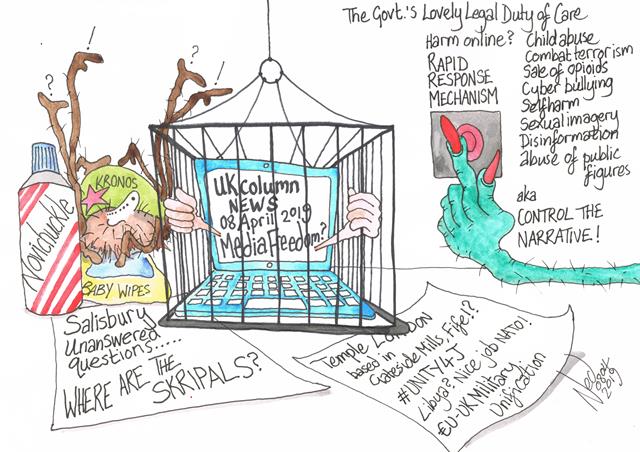 The Govt.'s Lovely Legal Duty of Care
Harm online?
RAPID
RESPONSE
MECHANISM
Child abuse
Combat terrorism
Sale of opioids
Cyber bullying
Selfharm
Sexual imagery
Disinformation
abuse of public
figures
aka
CONTROL THE
NARRATIVE!
?
!
?
!
Novichuckle
KRONOS
BABY WIPES
UK column
NEWS
08 April 2019
Media Freedom?
Salisbury
Unanswered
questions.....
WHERE ARE THE
SKRIPALS?
Temple LONDON
based in
Gateside Mills, Fife!?
#UNITY4J
Libya? Nice job NATO!
EU-UK Military
Unification
2019